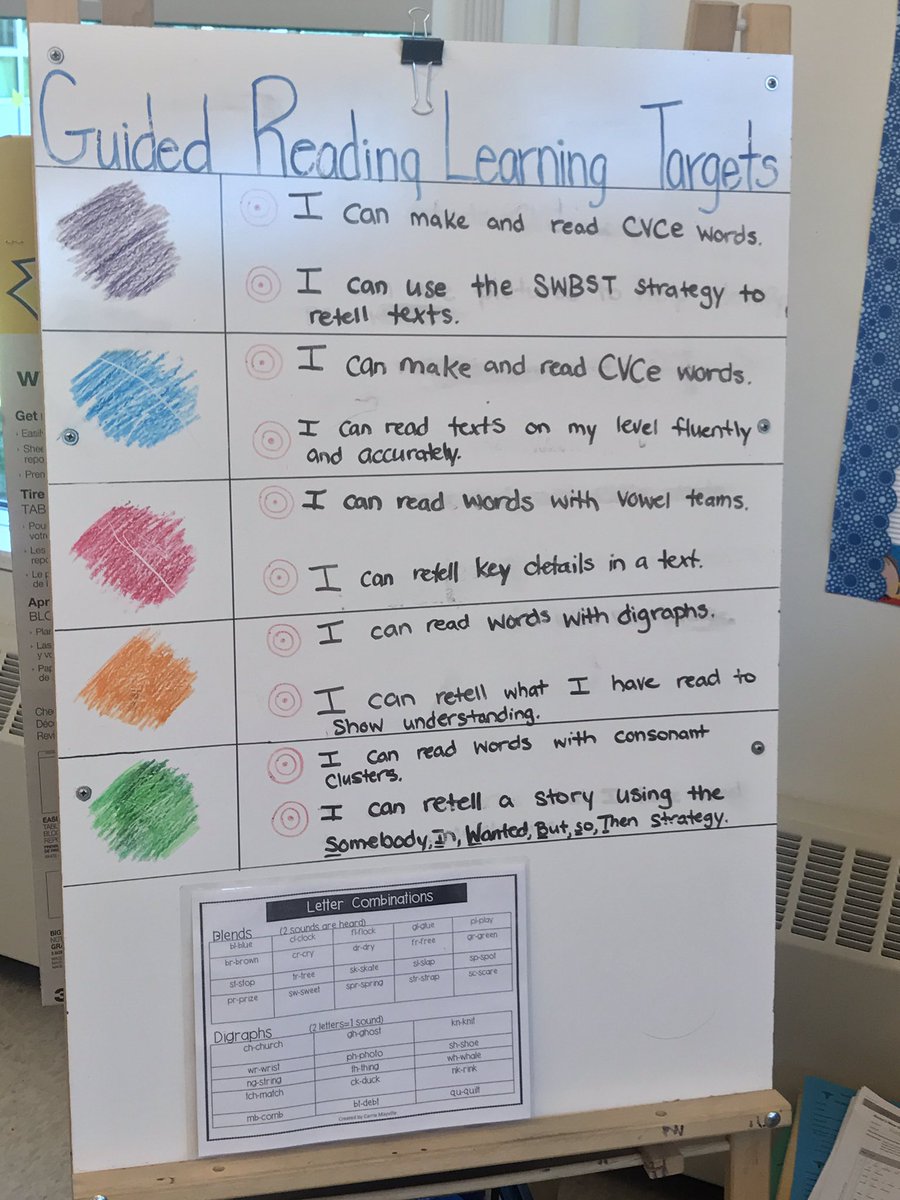 Guided Reading Learning Targets
I can make and read CVCe words.
I can use the SWBST strategy to
retell texts.
I can make and read CVCe words.
I can read texts on my level fluently
and accurately.
I can read words with vowel teams.
I can retell key details in a text.
I can read words with digraphs.
I can retell what I have read to
show understanding.
I can read words with consonant
clusters.
I can retell a story using the
Somebody, In, Wanted, But, so, Then strategy.
Letter Combinations
Blends (2 sounds are heard)
bl-blue cl-clock fl-flock gl-glue pl-play
br-brown cr-cry dr-dry fr-free gr-green
st-stop tr-tree sk-skate sl-slap sp-spot
pr-prize sw-sweet spr-spring str-strap sc-scare
Digraphs (2 letters=1 sound)
ch-church gh-ghost kn-knit
wr-wrist ph-photo sh-shoe
ng-string th-thing wh-whale
tch-match ck-duck nk-rink
mb-comb bt-debt qu-quilt
Created by Carrie Mayville
W
Get
Tire
TAB
Apr
BLO
Che
Déc
Revi
BIG
3